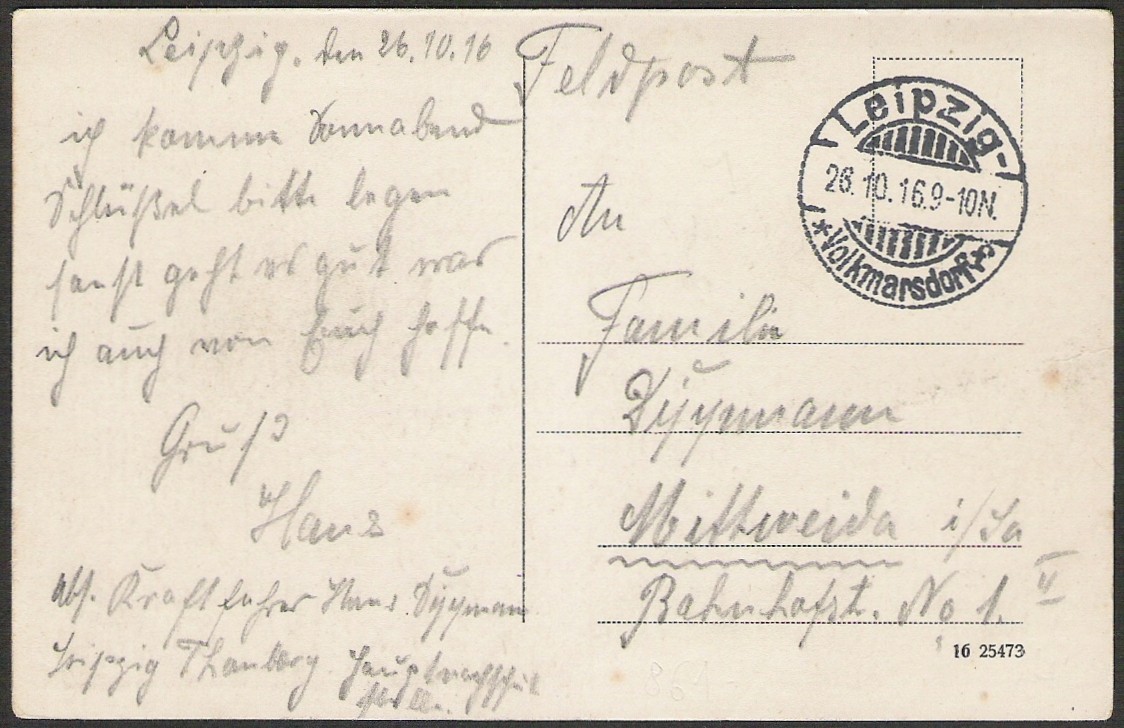 Leipzig, den 26.10.16
ich komme Sonnabend
Schlüßel bitte legen
sonst geht es gut was
ich auch von Euch hoffe.
Gruß
Hans
Abs. Kraftfahrer Hans
Leipzig Thonberg
Feldpost
An
Familie
Mittweida i/Sa
Bahnhofst. No 1. II
Leipzig-
26.10.16.9-10N.
*Volkmarsdorf*
16 25473